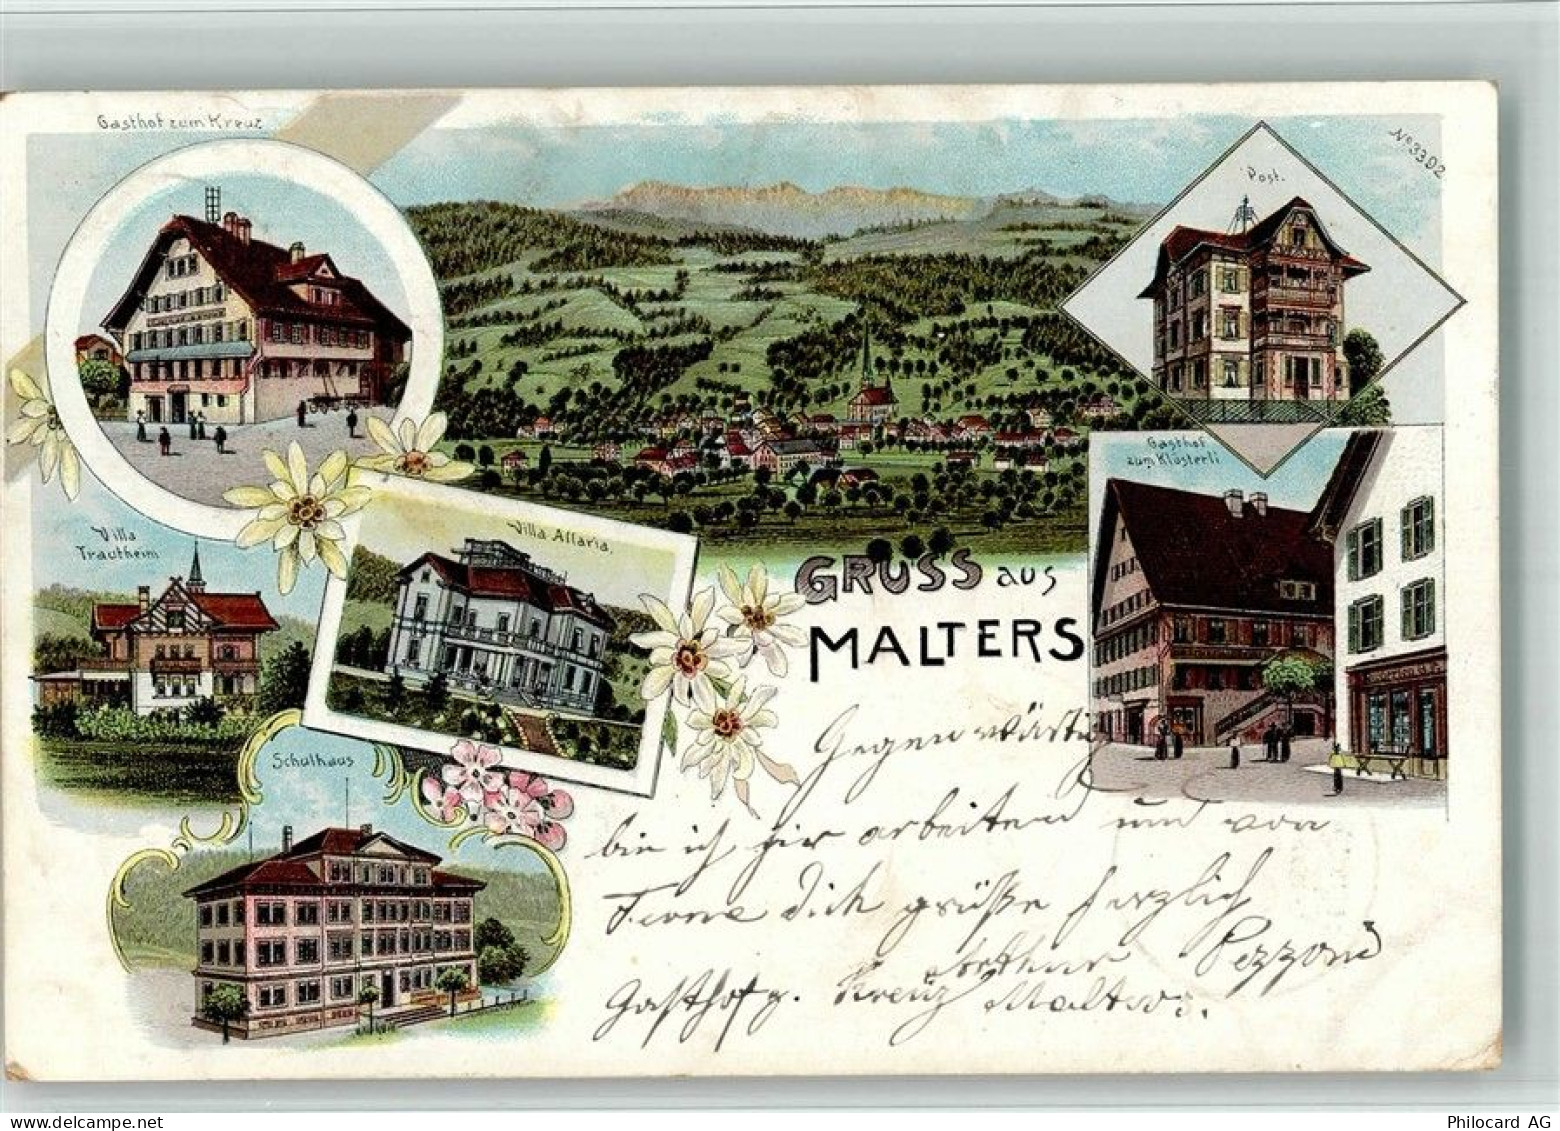 Gasthof zum Kreuz
No 3302
Post.
Gasthof
zum Klösterli
Villa
Trautheim
Villa Allaria.
GRUSS aus
MALTERS
Schulhaus
Gegenwärtig
bin ich hier arbeitend und von
Ferne Dich grüße herzlich
Arthur Pezzoni
Gasthof z. Kreuz Malters.
Philocard AG